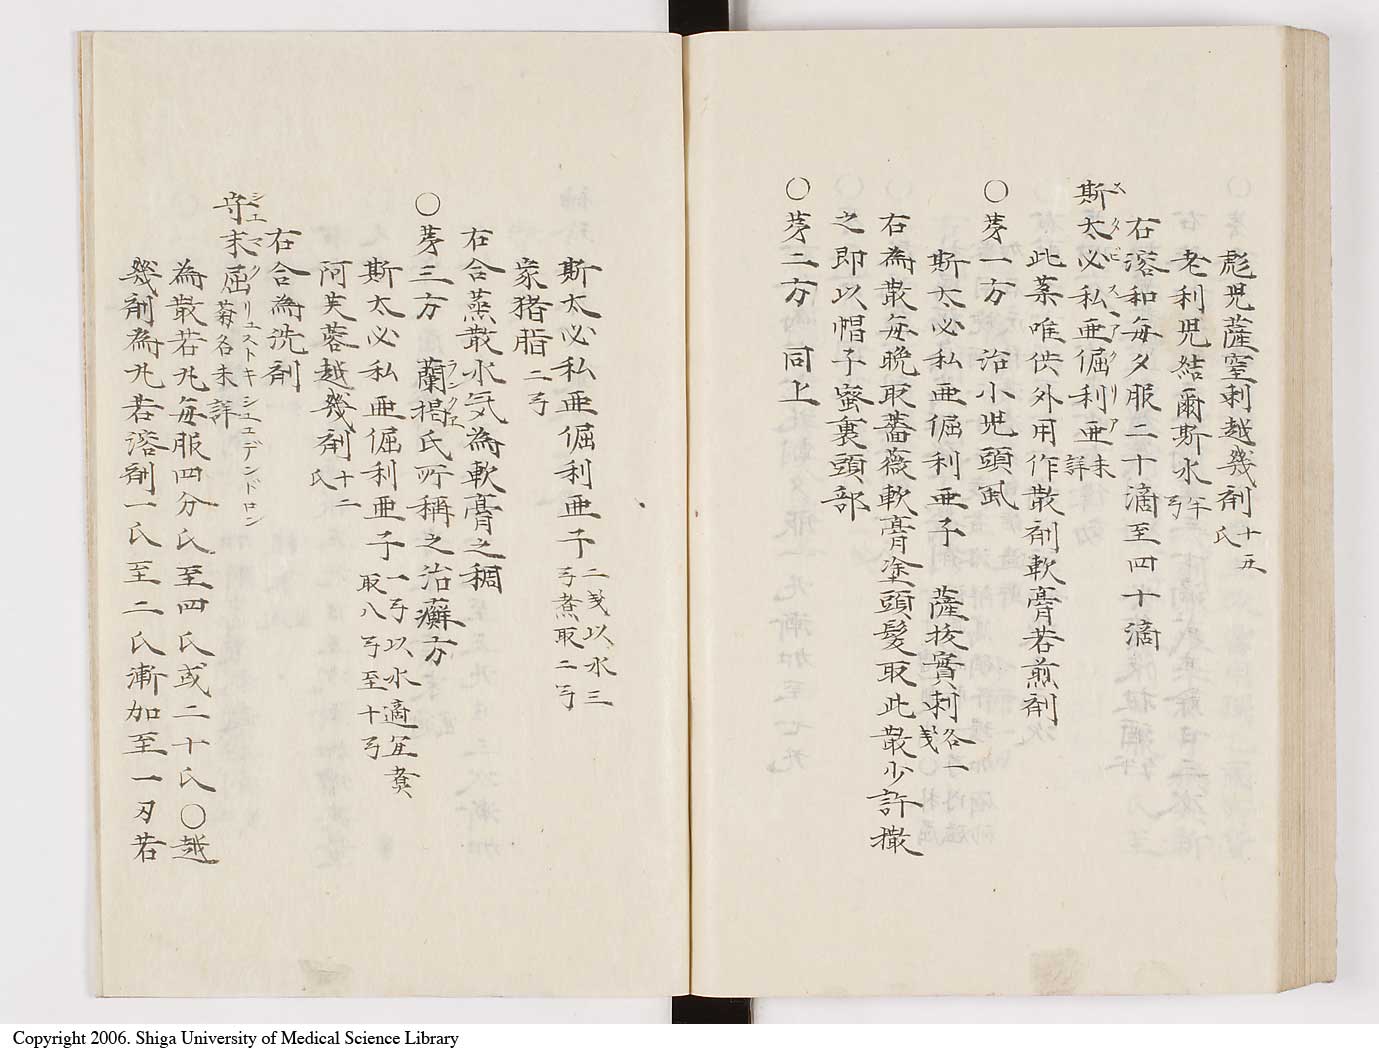 彪児薩窒剌越幾剤十五氏
老利児結爾斯水半弓
右溶和毎夕服二十滴至四十滴
斯太必私亜倔利亜未詳
スタビスヘアクリア
右此薬唯供外用作散剤軟膏若煎剤
〇苐一方 治小児頭虱
斯太必私亜倔利亜子 薩抜實剌各一戔
右為散毎晩取薔薇軟膏塗頭髪取此散少許撒
之即以帽子蜜裏頭部
〇苐二方 同上
斯太必私亜倔利亜子二戔以水三弓煮取二弓
家猪脂二弓
右合蒸散水気為軟膏之稠
〇苐三方 蘭掲氏所称之治癬方
ランクエ
斯太必私亜倔利亜子一弓以水適宜煮取八弓至十弓
阿芙蓉越幾剤十二氏
右合為洗剤
守末屈菊名未詳
シユマクリユストキシユデンドロン
為散若丸毎服四分氏至四氏或二十氏〇越
幾剤為丸若溶剤一氏至二氏漸加至一刃若
Copyright 2006. Shiga University of Medical Science Library